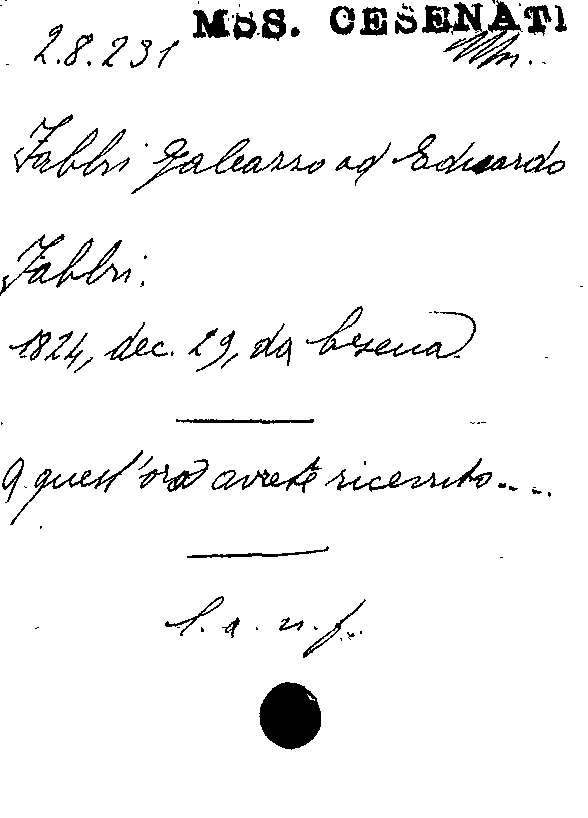 MSS. CESENATI
2.8.231
Fabbri Galeazzo ad Eduardo
Fabbri.
1824, dec. 29, da Cesena.
A quest'ora avrete ricevuto....
l. a. n. f.